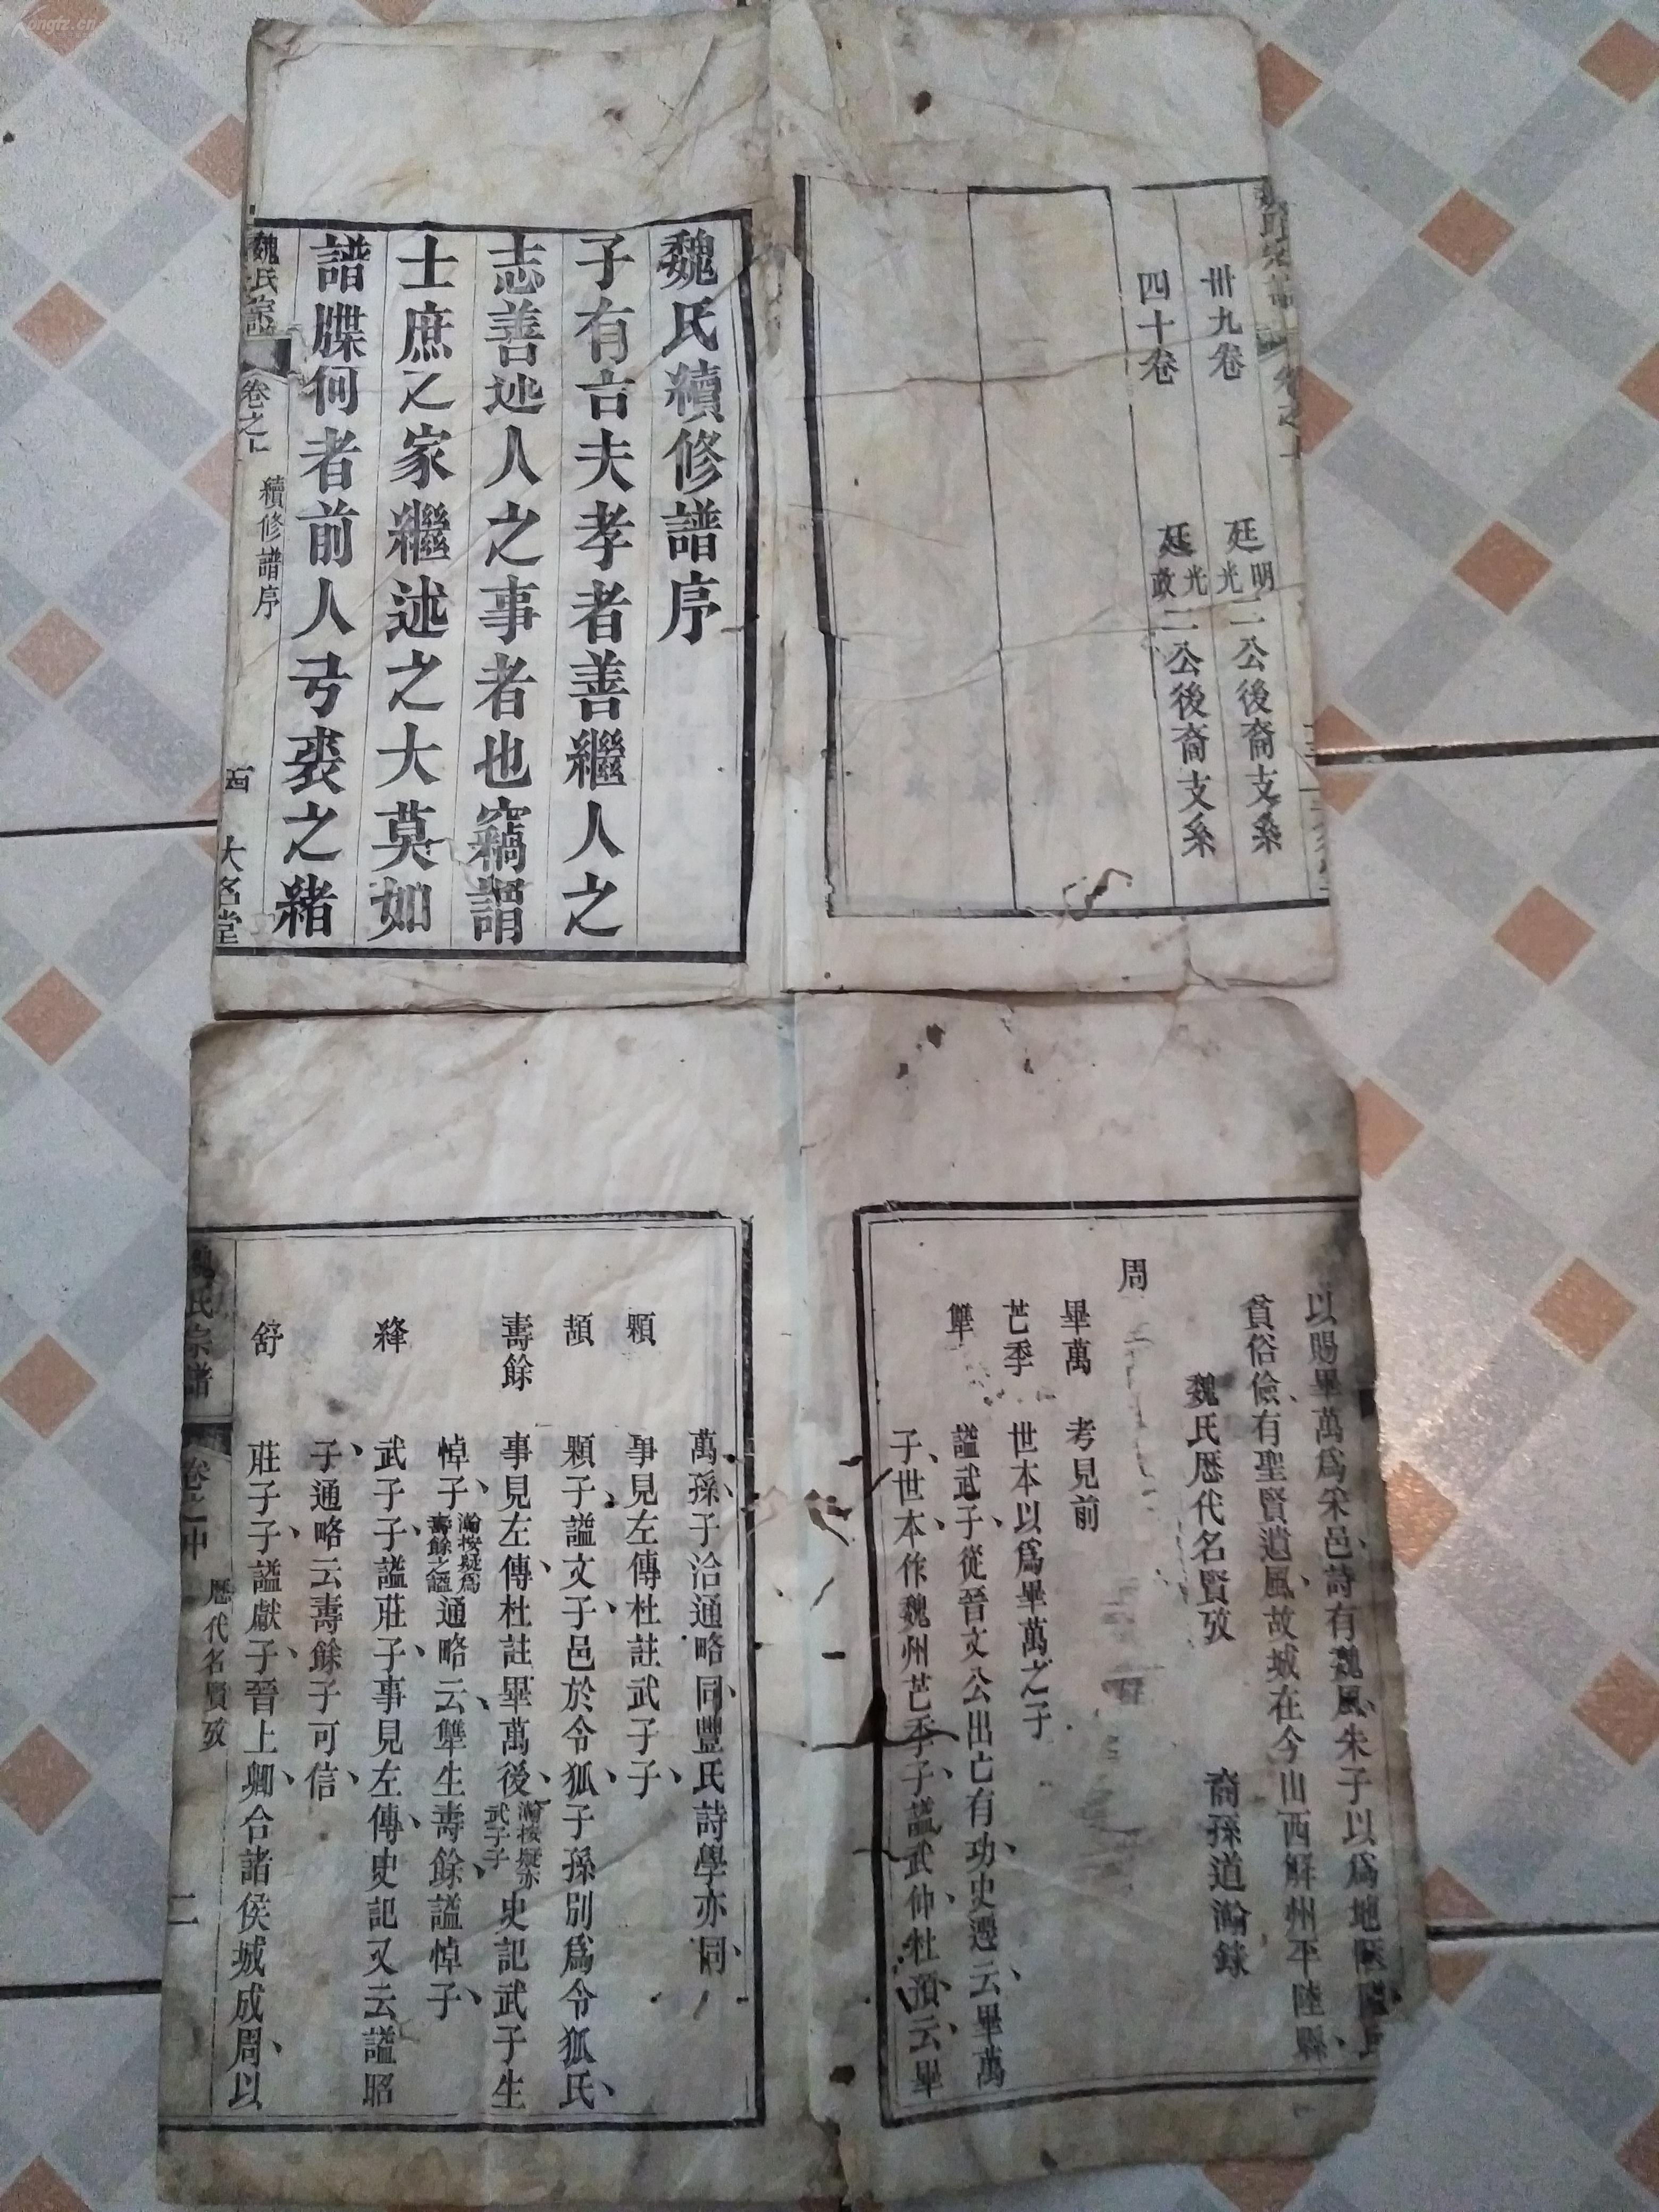 Kongfz.cn
卅九卷 廷明光二公後裔支系
四十卷 廷光政二公後裔支系
魏氏續修譜序
子有言夫孝者善繼人之
志善述人之事者也竊謂
士庶之家繼述之大莫如
譜牒何者前人弓裘之緒
魏氏宗譜 卷之上 續修譜序 大名堂
以賜畢萬爲采邑詩有魏風朱子以爲地陿隘民
貧俗儉有聖賢遺風故城在今山西解州平陸縣
魏氏歷代名賢攷 裔孫道瀚錄
周
畢萬 考見前
芒季 世本以爲畢萬之子
犨 謚武子從晉文公出亡有功史遷云畢萬
子世本作魏州芒季子謚武仲杜預云畢
萬孫子洽通略同豐氏詩學亦同
顆 事見左傳杜註武子子
頡 顆子謚文子邑於令狐子孫別爲令狐氏
壽餘 事見左傳杜註畢萬後瀚按疑亦武子子史記武子生
悼子瀚按疑爲壽餘之謚通略云犨生壽餘謚悼子
絳 武子子謚莊子事見左傳史記又云謚昭
子通略云壽餘子可信
舒 莊子子謚獻子晉上卿合諸侯城成周以
魏氏宗譜 卷之中 歷代名賢攷 二